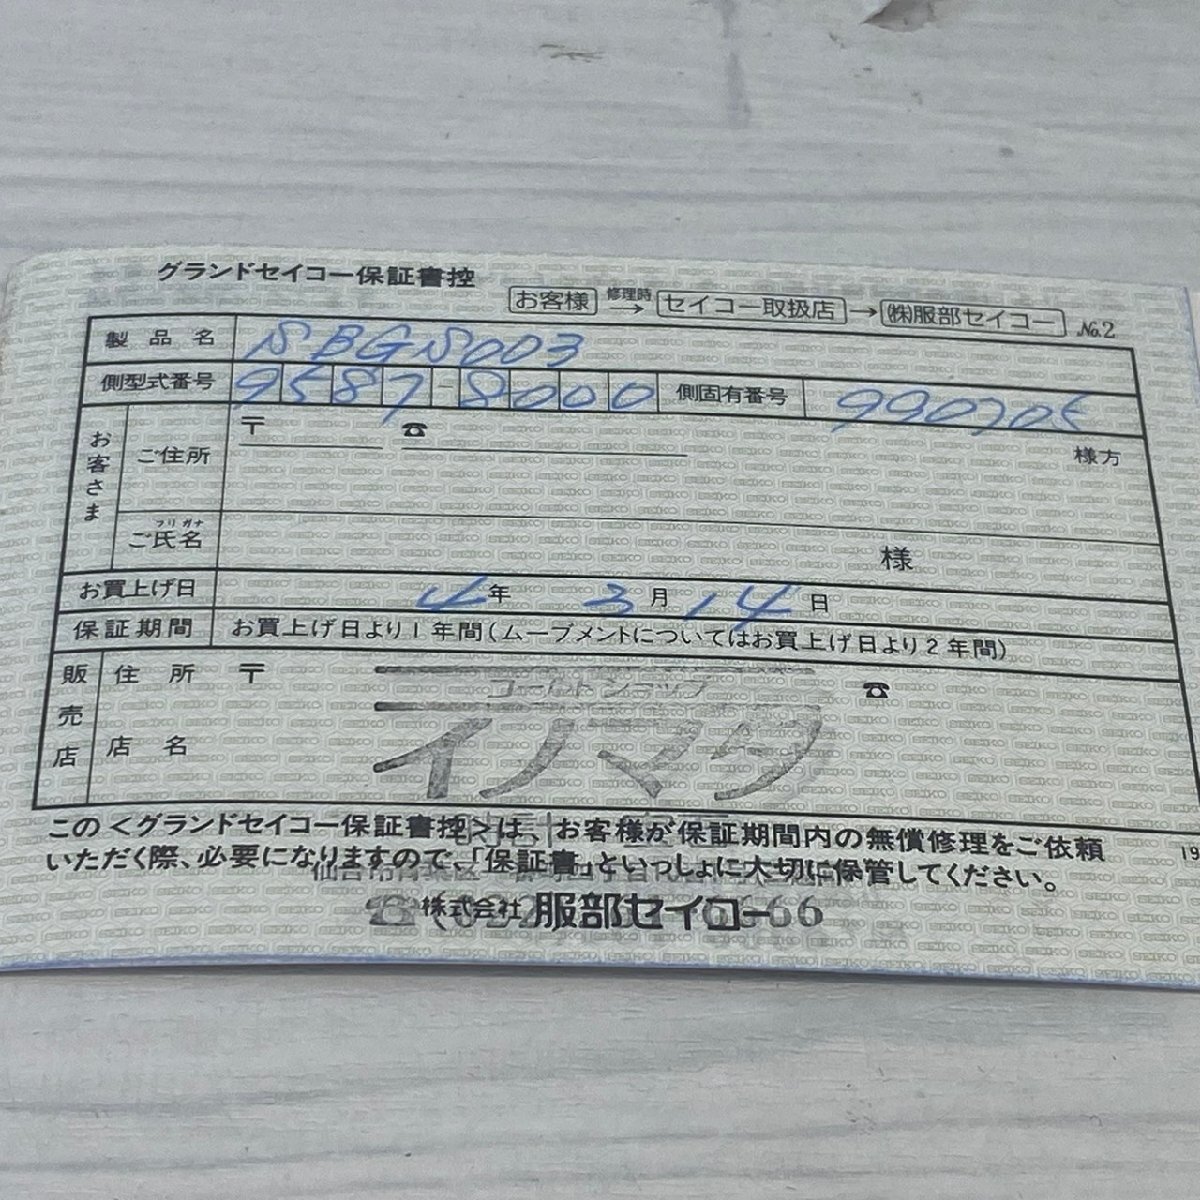 グランドセイコー保証書控
お客様 修理時→ セイコー取扱店 → ㈱服部セイコー No.2
製品名 SBGS003
側型式番号 9587-8000 側固有番号 99070
お客さま ご住所 〒 ☎ 様方
フリガナ
ご氏名 様
お買上げ日 4年 3月 14日
保証期間 お買上げ日より1年間(ムーブメントについてはお買上げ日より2年間)
販売店 住所 〒 ☎
ゴールドショップ
店名 イノマタ
この<グランドセイコー保証書控>は、お客様が保証期間内の無償修理をご依頼
いただく際、必要になりますので、「保証書」といっしょに大切に保管してください。
株式会社 服部セイコー